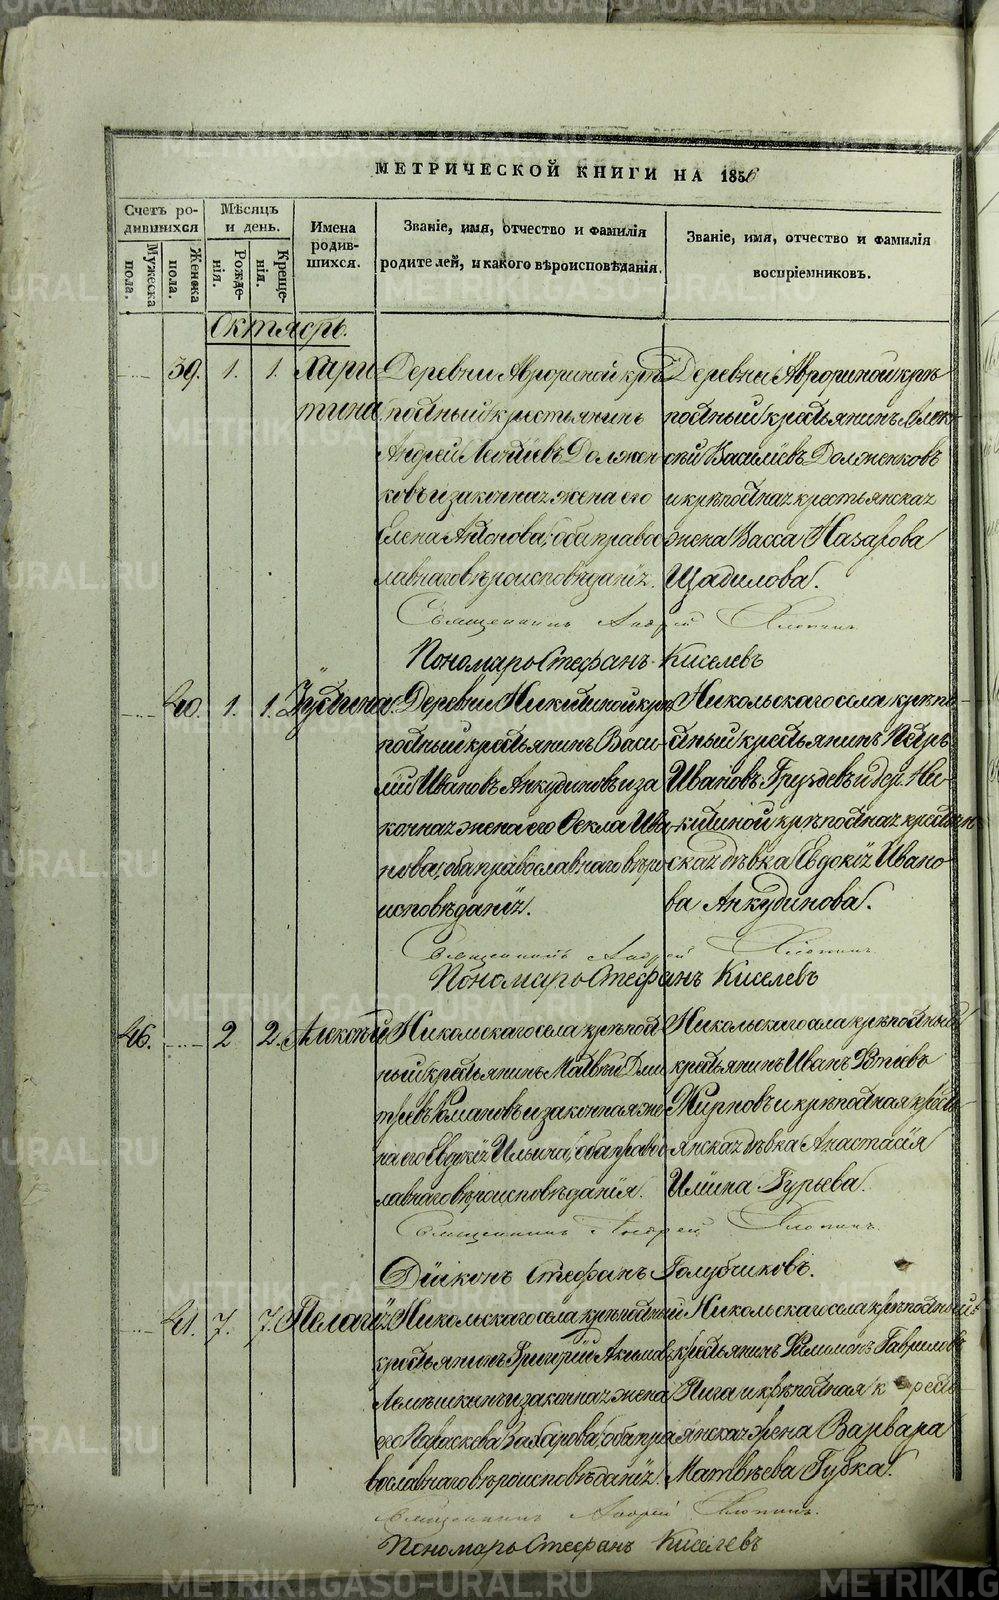 МЕТРИЧЕСКОЙ КНИГИ НА 1856
Счетъ ро-
дившихся
Мужеска
пола.
Женска
пола.
Мѣсяцъ
и день.
Рожде-
нія.
Креще-
нія.
Имена
родив-
шихся.
Званіе, имя, отчество и фамилія
родителей, и какого вѣроисповѣданія.
Званіе, имя, отчество и фамилія
воспріемниковъ.
Октябрь.
39. 1. 1. Хари
тина
Деревни Аврориной крѣ
постный крестьянинъ
Андрей Леонтіевъ Должен
ковъ и законная жена его
Елена Антонова, оба право
славнаго вѣроисповѣданія.
Деревни Аврориной крѣ
постный крестьянинъ Алек
сѣй Василіевъ Долженковъ
и крѣпостная крестьянская
жена Васса Назарова
Щадилова.
Священникъ Андрей Хлопинъ
Пономарь Стефанъ Киселевъ
40. 1. 1. Іустина.
Деревни Никитиной крѣ
постный крестьянинъ Васи-
лій Ивановъ Анкудиновъ и за
конная жена его Ѳекла Ива
нова, оба православнаго вѣро
исповѣданія.
Никольскаго села крѣпо
стный крестьянинъ Петръ
Ивановъ Груздевъ и дер. Ни-
китиной крѣпостная крестьян
ская дѣвка Евдокія Ивано
ва Анкудинова.
Священникъ Андрей Хлопинъ
Пономарь Стефанъ Киселевъ
46. 2 2. Алексѣй
Никольскаго села крѣпост
ный крестьянинъ Матвѣй Дми
тріевъ Романовъ и законная же
на его Евдокія Ильина, оба правос
лавнаго вѣроисповѣданія.
Никольскаго села крѣпостный
крестьянинъ Иванъ
Жирновъ и крѣпостная кресть
янская дѣвка Анастасія
Иліина Гурьева.
Священникъ Андрей Хлопинъ.
Діаконъ Стефанъ Голубчиковъ.
41. 7. 7. Пелагія
Никольскаго села крѣпостный
крестьянинъ Григорій Акимовъ
Лемешкинъ и законная жена
его Параскева Захарова, оба пра
вославнаго вѣроисповѣданія.
Никольскаго села крѣпостный
крестьянинъ Филимонъ Гавриловъ
Пига и крѣпостная к рестъ
янская жена Варвара
Матвѣева Губка.
Священникъ Андрей Хлопинъ.
Пономарь Стефанъ Киселевъ
METRIKI.GASO-URAL.RU